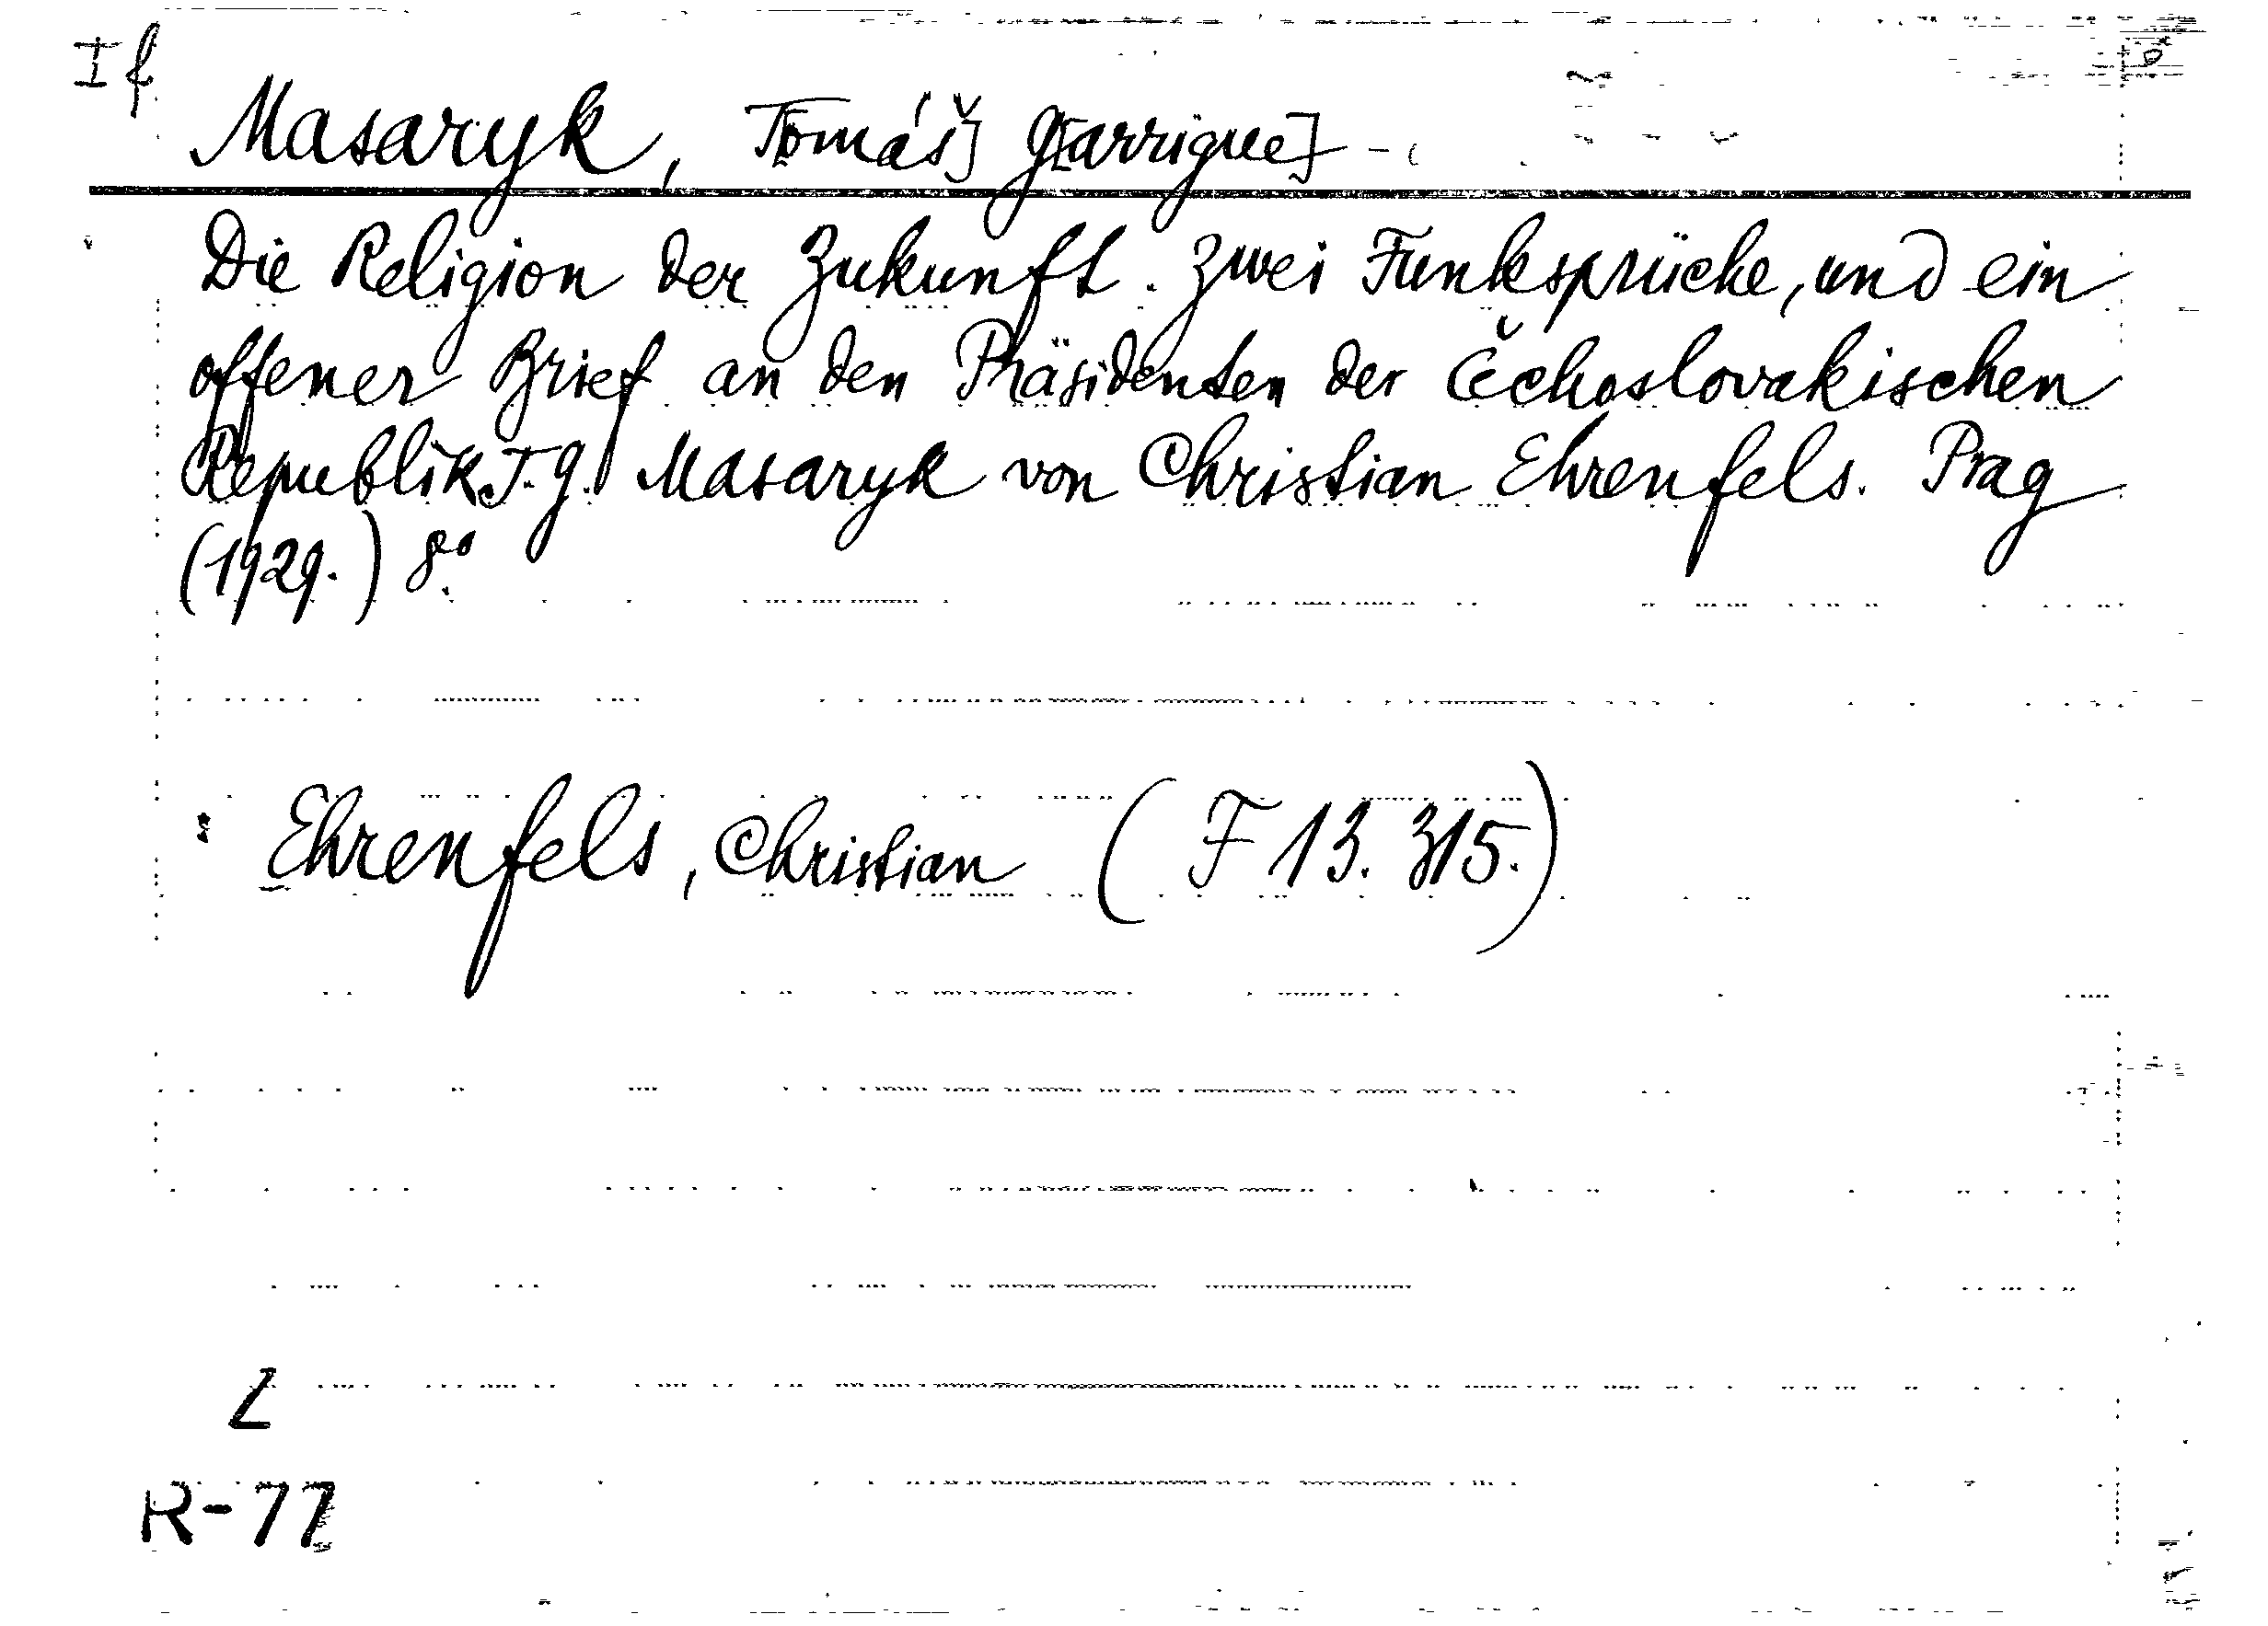 If
Masaryk, T[omáš] G[arrigue]
Die Religion der Zukunft. Zwei Funksprüche, und ein
offener Brief an den Präsidenten der Čechoslovakischen
Republik T. G. Masaryk von Christian Ehrenfels. Prag
(1929.) 8°.
: Ehrenfels, Christian (F 13. 315.)
Z
R-77